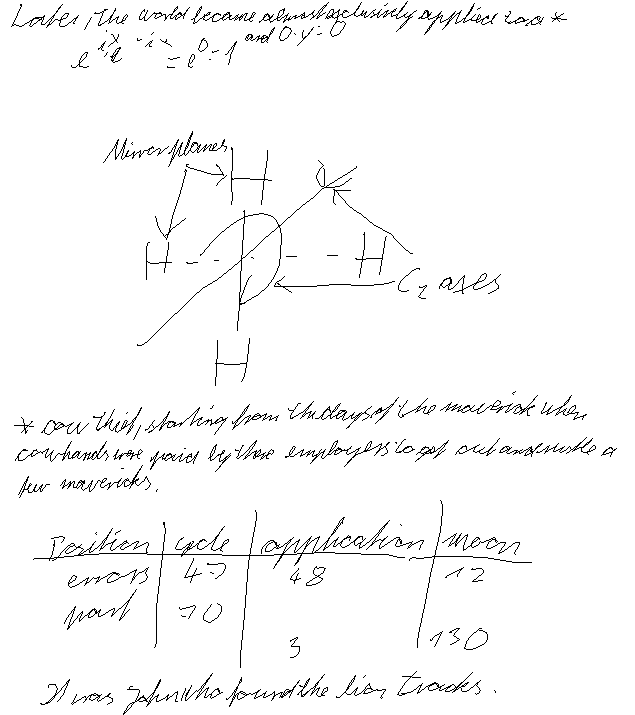 Later, the world became almost exclusively applied to a *
e^{ix}e^{-ix} = e^0 = 1 and 0·y = 0
Mirror planes
H
H H
C_2 axes
H
* cow thief, starting from the days of the maverick when
cowhands were paid by there employers to get out and rustle a
few mavericks.
Position cycle application moon
errors 47 48 12
part 70
3 130
It was John who found the lion tracks.